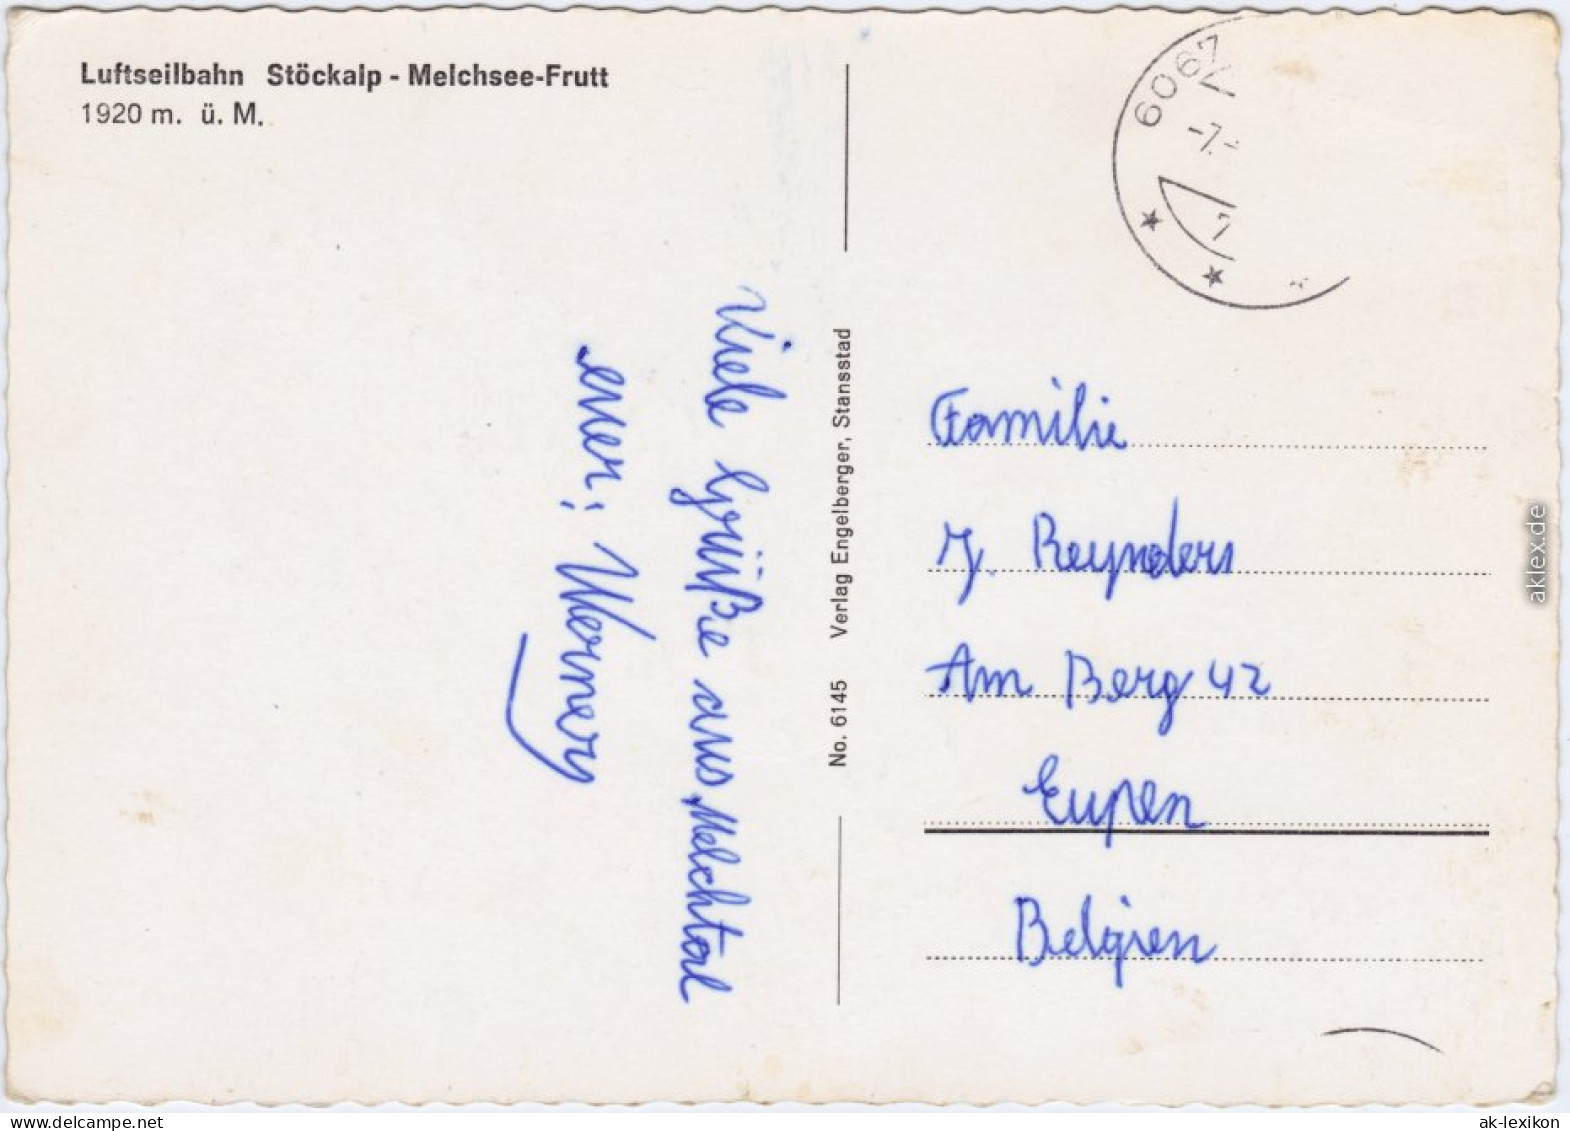 Luftseilbahn Stöckalp - Melchsee-Frutt
1920 m. ü. M.
Viele Grüße aus Melchtal
euer: Werner
No. 6145 Verlag Engelberger, Stansstad
6067
-7.-
7
Familie
J. Reynders
Am Berg 42
Eupen
Belgien
aklex.de
www.delcampe.net
ak-lexikon